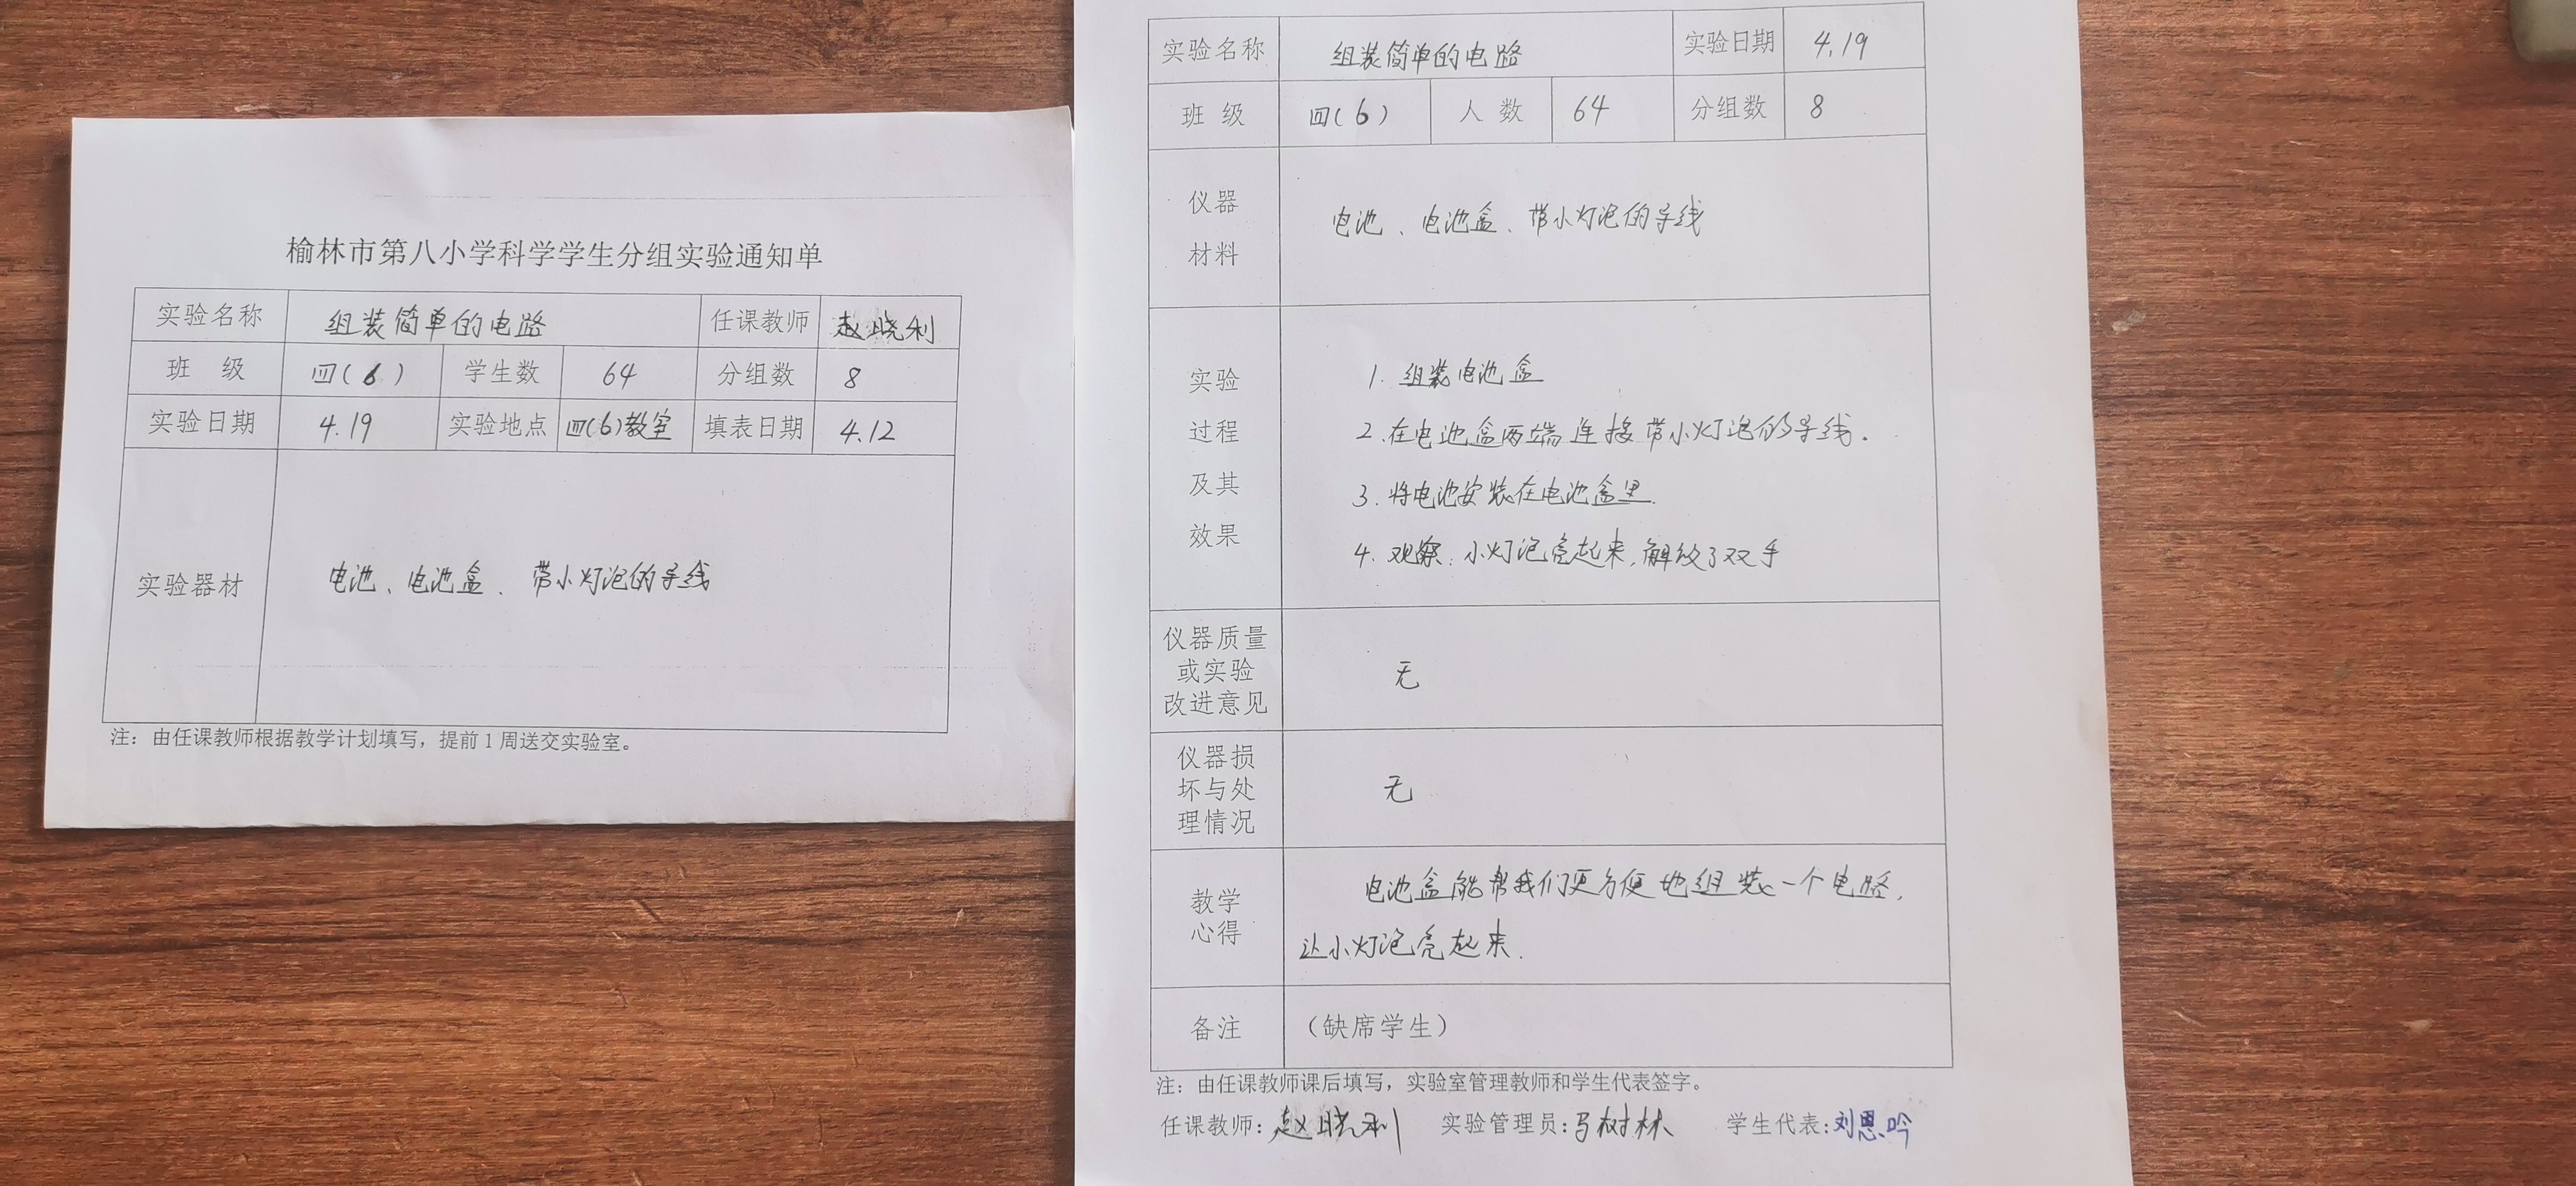 榆林市第八小学科学学生分组实验通知单
实验名称 组装简单的电路 任课教师 赵晓利
班 级 四(6) 学生数 64 分组数 8
实验日期 4.19 实验地点 四(6)教室 填表日期 4.12
实验器材 电池、电池盒、带小灯泡的导线
注：由任课教师根据教学计划填写，提前1周送交实验室。
实验名称 组装简单的电路 实验日期 4.19
班 级 四(6) 人 数 64 分组数 8
仪器
材料
电池、电池盒、带小灯泡的导线
实验
过程
及其
效果
1.组装电池盒
2.在电池盒两端连接带小灯泡的导线.
3.将电池安装在电池盒里.
4.观察:小灯泡亮起来,解放了双手
仪器质量
或实验
改进意见
无
仪器损
坏与处
理情况
无
教学
心得
电池盒能帮我们更方便地组装一个电路,
让小灯泡亮起来.
备注 （缺席学生）
注：由任课教师课后填写，实验室管理教师和学生代表签字。
任课教师:赵晓利 实验管理员:马树林 学生代表:刘恩吟